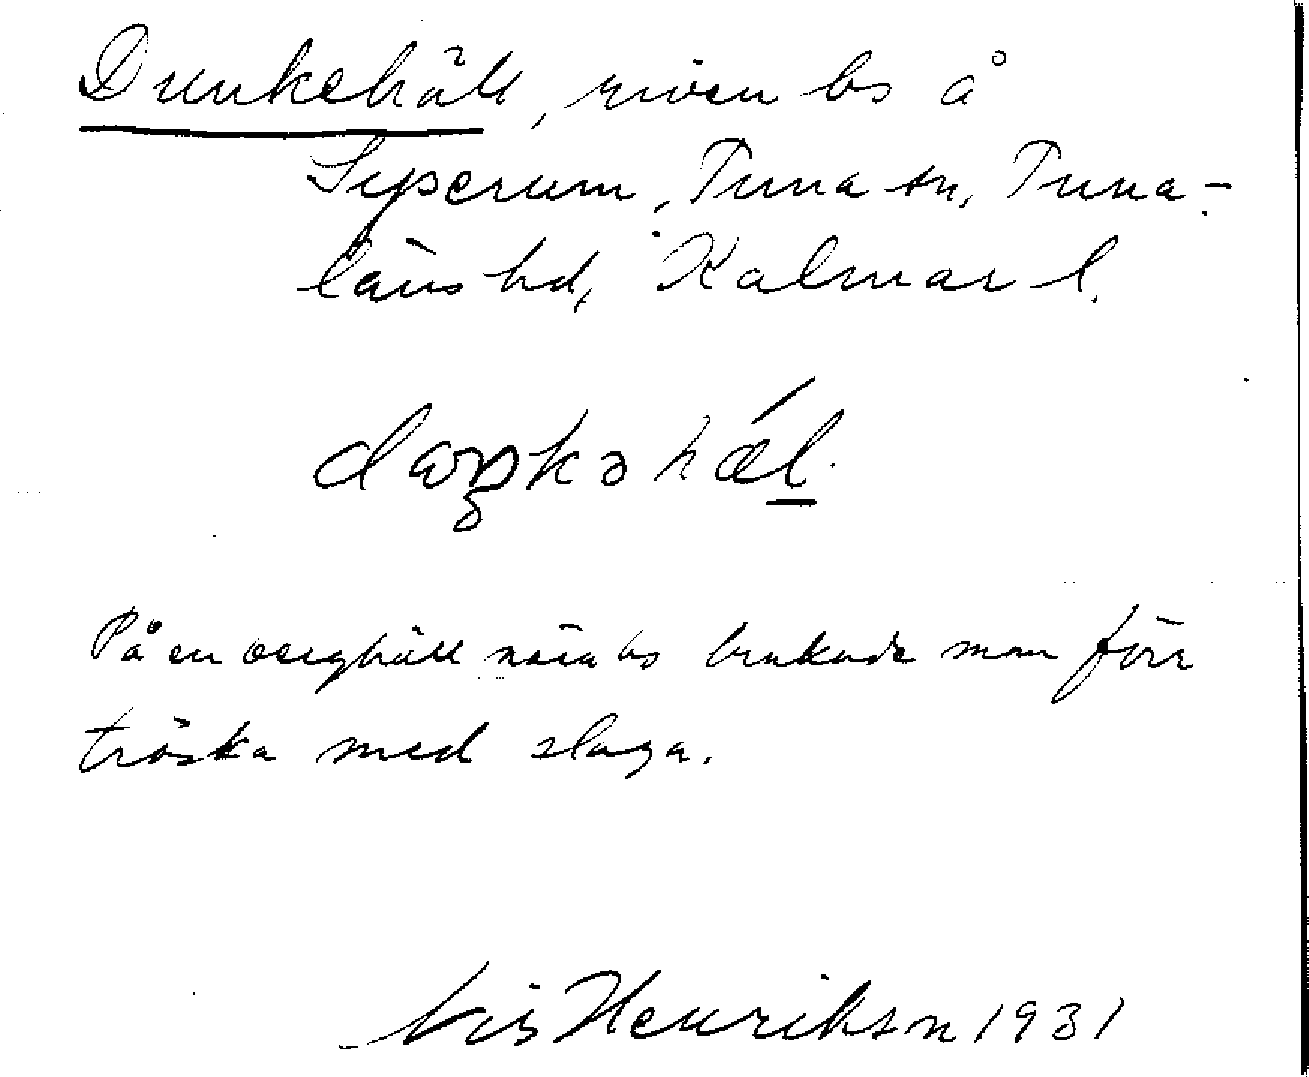 Dunkehäll, riven bs å
Syserum, Tuna sn, Tuna-
läns hd, Kalmar l.
På en berghäll nära bs brukade man förr
tröska med slaga.
Nils Henrikson 1931